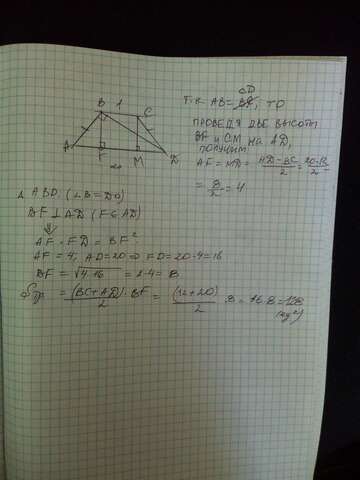 B 1 C
A F M D
20
CD
Т.К. AB = , ТО
ПРОВЕДЯ ДВЕ ВЫСОТЫ
BF и CM на AD,
ПОЛУЧИМ
AF = MD = AD - BC / 2 = 20-12 / 2 =
= 8/2 = 4
Δ ABD. (∠B = 90)
BF ⊥ AD (F ∈ AD)
⇓
AF · FD = BF²
AF = 4; AD = 20 ⇒ FD = 20-4 = 16
BF = √4·16 = 2·4 = 8
Sтр = (BC + AD) / 2 · BF = (12+20) / 2 · 8 = 16·8 = 128